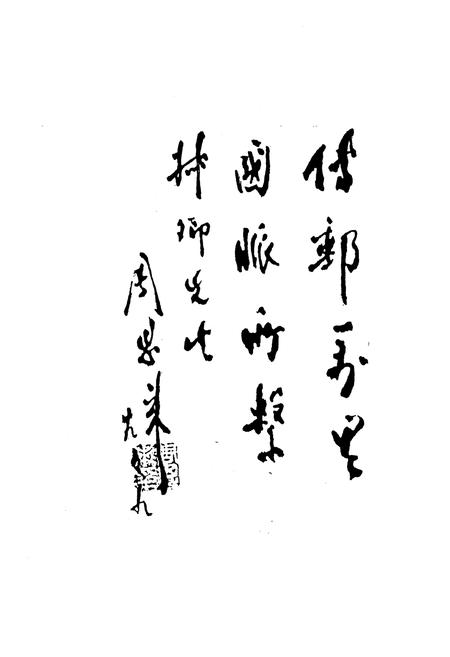 傳郵萬里
國脈所繫
先生
周恩來